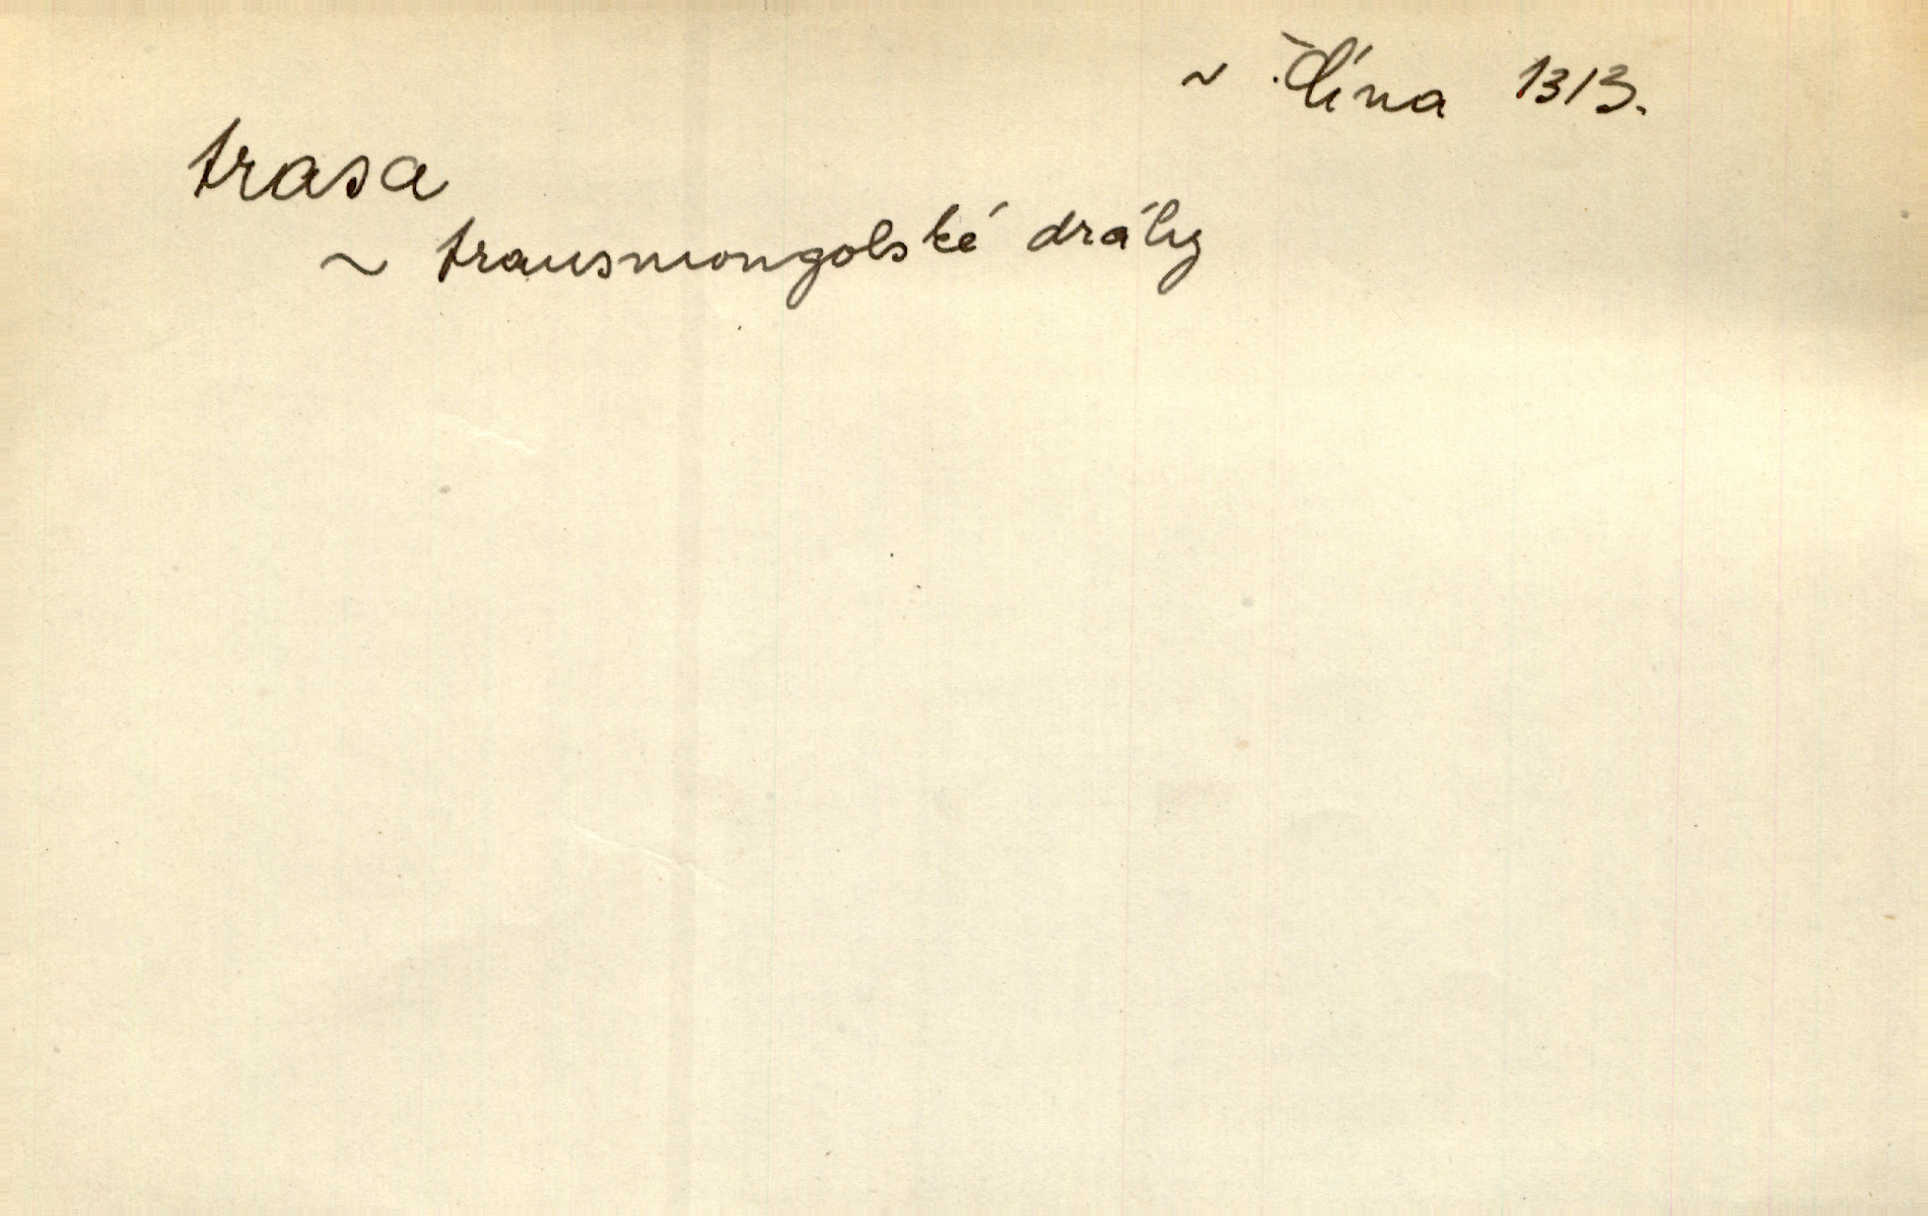 ~ Čína 1313.
trasa
~ transmongolské dráhy